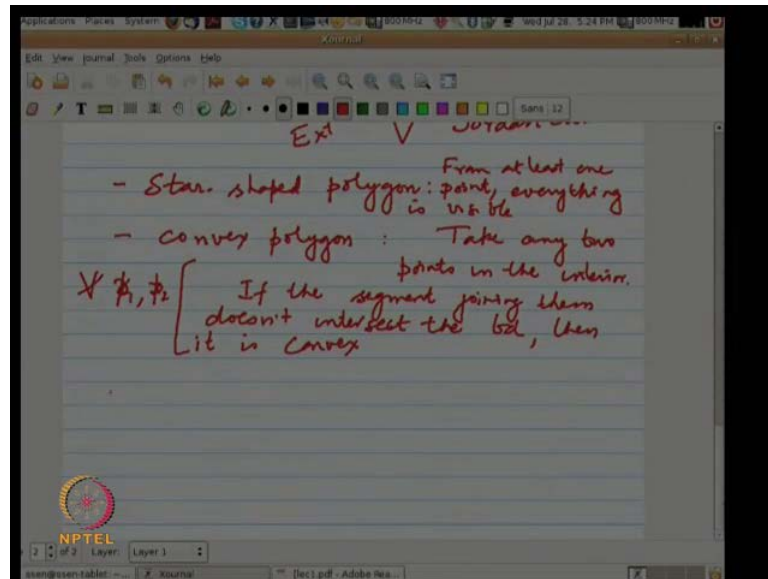 Applications Places System 800 MHz Wed Jul 28, 5:24 PM 800 MHz
Xournal
Edit View Journal Tools Options Help
T Sans 12
Ext V Jordan
- Star. shaped polygon: From at least one
point, everything
is visible
- convex polygon : Take any two
points in the interior.
∀ p₁, p₂ If the segment joining them
doesn't intersect the bd, then
it is convex
NPTEL
2 of 2 Layer: Layer 1
ssen@ssen-tablet: ~... Xournal [lec1.pdf - Adobe Rea...]